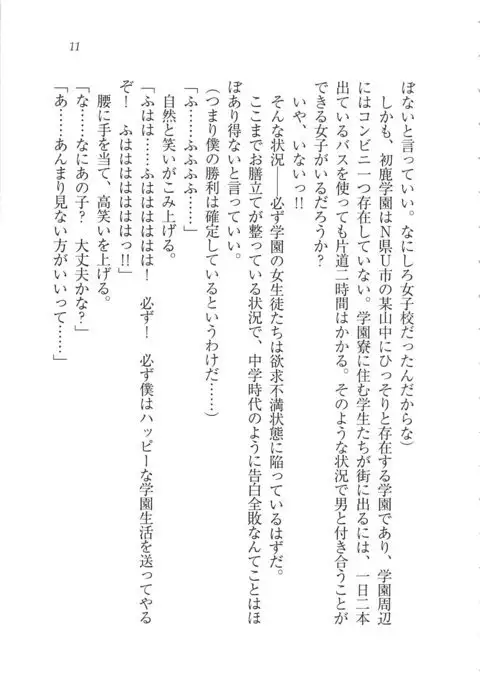 11
ぽないと言っていい。なにしろ女子校だったんだからな）
　しかも、初鹿学園はN県U市の某山中にひっそりと存在する学園であり、学園周辺
にはコンビニ一つ存在していない。学園寮に住む学生たちが街に出るには、一日二本
出ているバスを使っても片道二時間はかかる。そのような状況で男と付き合うことが
できる女子がいるだろうか？
　いや、いないっ!!
　そんな状況――必ず学園の女生徒たちは欲求不満状態に陥っているはずだ。
　ここまでお膳立てが整っている状況で、中学時代のように告白全敗なんてことはほ
ぼあり得ないと言っていい。
（つまり僕の勝利は確定しているというわけだ……）
「ふ……ふふふふ……」
　自然と笑いがこみ上げる。
「ふはは……ふはははははは！　必ず！　必ず僕はハッピーな学園生活を送ってやる
ぞ！　ふはははははははっ!!」
　腰に手を当て、高笑いを上げる。
「な……なにあの子？　大丈夫かな？」
「あ……あんまり見ない方がいいって……」